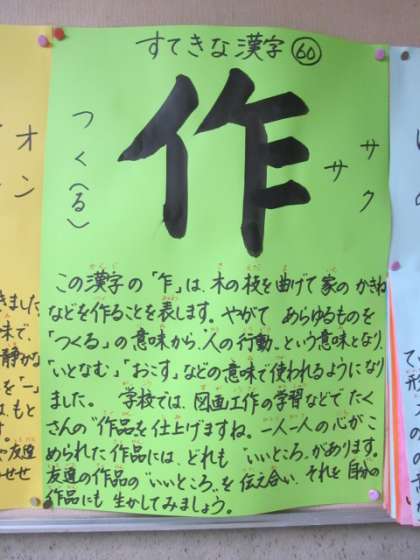 すてきな漢字 60
作
つく(る)
サ
サク
この漢字の「乍」は、木の枝を曲げて家のかきね
などを作ることを表します。やがて あらゆるものを
「つくる」の意味から、"人の行動"という意味となり、
「いとなむ」「おこす」などの意味で使われるようになり
ました。 学校では、図画工作の学習などでたく
さんの"作品"を仕上げますね。一人一人の心がこ
められた作品には、どれも"いいところ"があります。
友達の作品の"いいところ"を伝え合い、それを自分の
作品にも 生かしてみましょう。
オン
きました
味で、
静かな
を「一」
はもと
す。
や友達